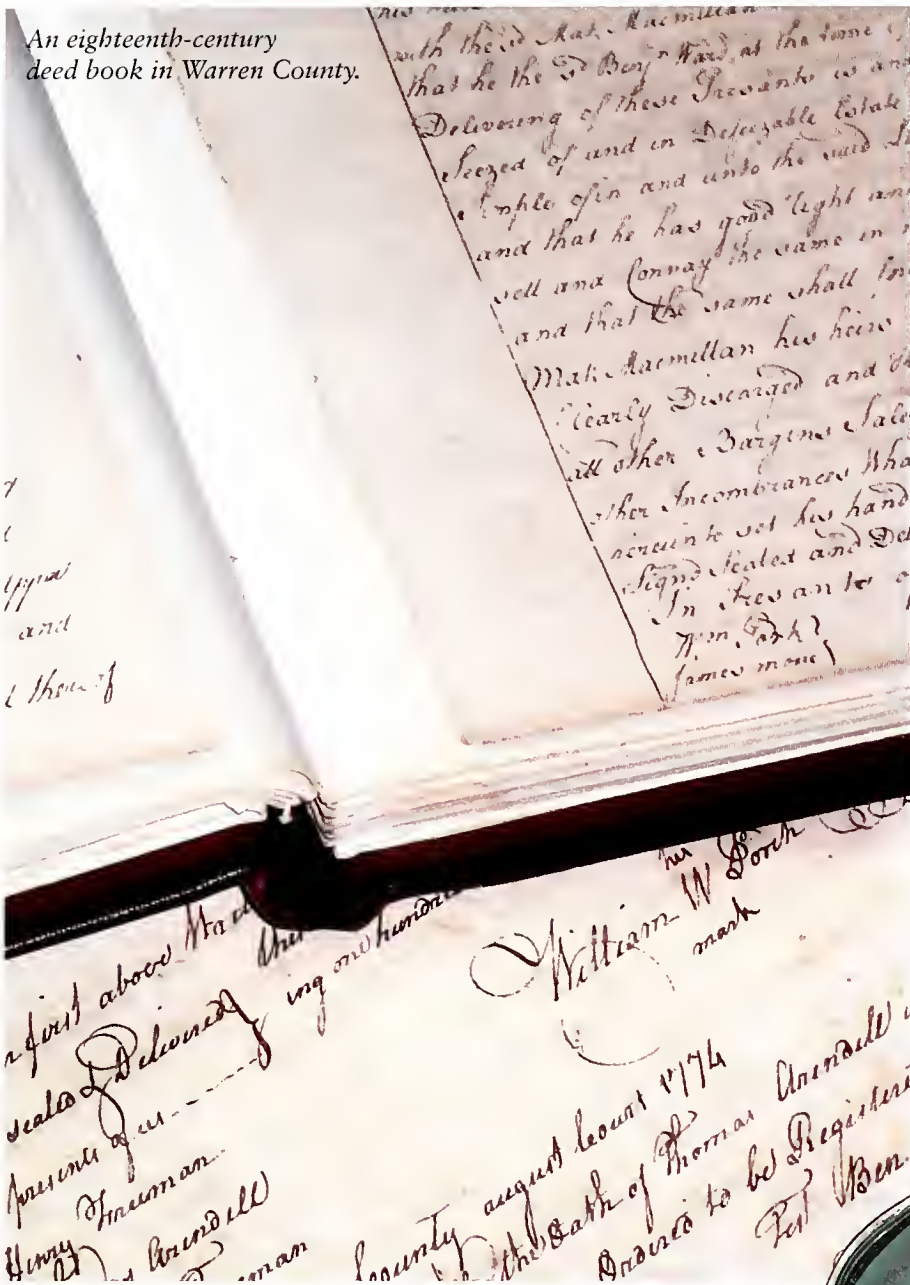 An eighteenth-century
deed book in Warren County.
his
with the sd Mat. Macmillan
that he the sd Benjn Ward at the time of
Delivering of these Presants is and
Seezed of and in Defeezable Estate
Simple of in and unto the said
and that he has good Right and
sell and Convay the same in
and that the same shall
Mat. Macmillan his heirs
Clearly Discarged and
all other Bargins Sale
other Incombrances Wha
hereunto set his hand
Signd Sealed and Del
In Presants of
Wm Park
James
and
thereof
his
William W Porch
mark
first above
ing one hundred
sealed & Delivered
presents of us
Henry Freuman
Arundell
County august Court 1774
the Oath of Thomas Arundell
Ordered to be Registered
Test Ben.